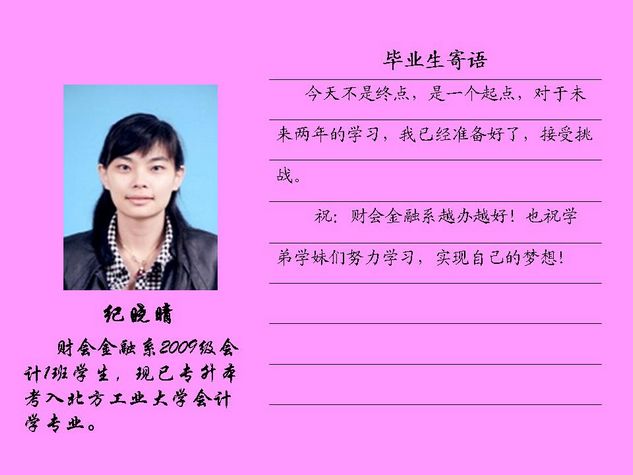 毕业生寄语
今天不是终点，是一个起点，对于未
来两年的学习，我已经准备好了，接受挑
战。
祝：财会金融系越办越好！也祝学
弟学妹们努力学习，实现自己的梦想！
纪晓晴
财会金融系2009级会
计1班学生，现已专升本
考入北方工业大学会计
学专业。